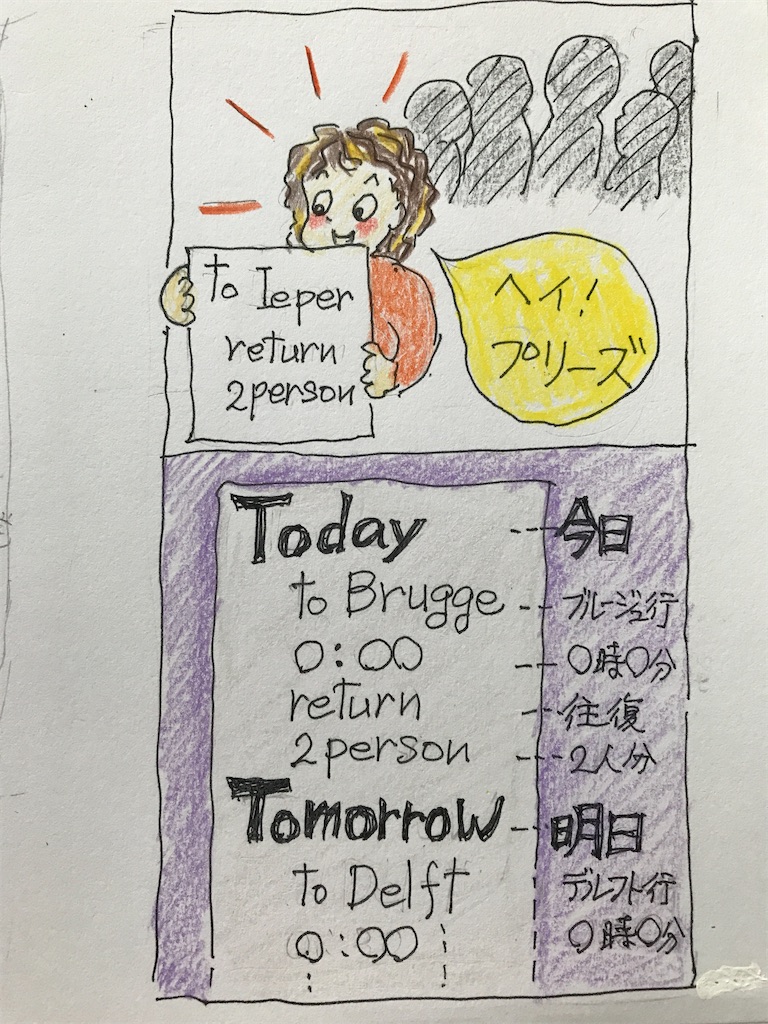 to Ieper
return
2person
ヘイ!
プリーズ
Today
今日
to Brugge
ブルージュ行
0:00
〇時〇分
return
往復
2person
2人分
Tomorrow
明日
to Delft
デルフト行
0:00
〇時〇分